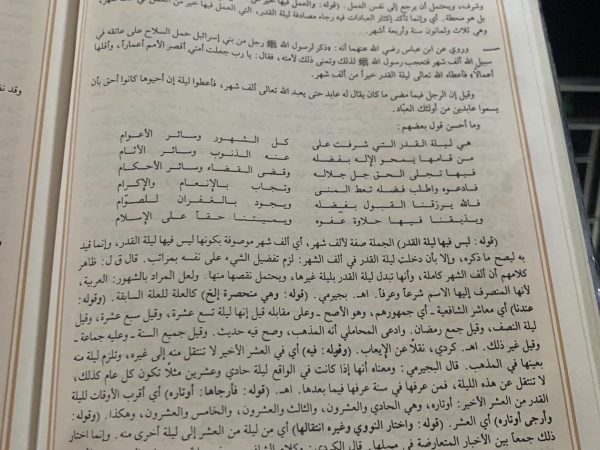 وشرف، ويحتمل أن يرجع إلى نفس العمل. (قوله: والعمل فيها خير من
بل هو محطة. أي وإنما تأكد إكثار العبادات فيه رجاء مصادفة ليلة القدر، التي العمل فيها خير من العمل في ألف شهر،
وهي ثلاث وثمانون سنة وأربعة أشهر.
وروي عن ابن عباس رضي الله عنهما أنه: «ذكر لرسول الله ﷺ رجل من بني إسرائيل حمل السلاح على عاتقه في
سبيل الله ألف شهر فتعجب رسول الله ﷺ لذلك وتمنى ذلك لأمته، فقال: يا رب جعلت أمتي أقصر الأمم أعماراً، وأقلها
أعمالاً» فأعطاه الله تعالى ليلة القدر خيراً من ألف شهر.
وقيل إن الرجل فيما مضى ما كان يقال له عابد حتى يعبد الله تعالى ألف شهر، فأعطوا ليلة إن أحيوها كانوا أحق بأن
يسموا عابدين من أولئك العبّاد.
وما أحسن قول بعضهم:
هي ليلة القدر التي شرفت على كل الشهور وسائر الأعوام
من قامها يمحو الإله بفضله عنه الذنوب وسائر الآثام
فيها تجلى الحق جل جلاله وقضى القضاء وسائر الأحكام
فادعوه واطلب فضله تعط المنى وتجاب بالإنعام والإكرام
فالله يرزقنا القبول بفضله ويجود بالغفران للصوّام
ويذيقنا فيها حلاوة عفوه ويميتنا حقاً على الإسلام
(قوله: ليس فيها ليلة القدر) الجملة صفة لألف شهر، أي ألف شهر موصوفة بكونها ليس فيها ليلة القدر، وإنما قيد
به ليصح ما ذكره، وإلا بأن دخلت ليلة القدر في ألف الشهر: لزم تفضيل الشيء على نفسه بمراتب. قال ق ل: ظاهر
كلامهم أن ألف الشهر كاملة، وأنها تبدل ليلة القدر بليلة غيرها، ويحتمل نقصها منها. ولعل المراد بالشهور: العربية،
لأنها المنصرف إليها الاسم شرعاً وعرفاً. اهـ. بجيرمي. (قوله: وهي منحصرة إلخ) كالعلة للعلة السابقة. (وقوله:
عندنا) أي معاشر الشافعية ـ أي جمهورهم، وهو الأصح ـ وعلى مقابله قيل إنها ليلة تسع عشرة، وقيل سبع عشرة، وقيل
ليلة النصف، وقيل جمع رمضان. وادعى المحاملي أنه المذهب، وصح فيه حديث. وقيل جميع السنة ـ وعليه جماعة ـ
وقيل غير ذلك. اهـ. كردي، نقلاً عن الإيعاب. (وقوله: فيه) أي في العشر الأخير لا تنتقل منه إلى غيره، وتلزم ليلة منه
بعينها في المذهب. قال البجيرمي: ومعناه أنها إذا كانت في الواقع ليلة حادي وعشرين مثلاً تكون كل عام كذلك،
لا تنتقل عن هذه الليلة، فمن عرفها في سنة عرفها فيما بعدها. اهـ. (قوله: فأرجاها: أوتاره) أي أقرب الأوقات لليلة
القدر من العشر الأخير: أوتاره، وهي الحادي والعشرون، والثالث والعشرون، والخامس والعشرون، وهكذا. (وقوله:
وأرجى أوتاره) أي العشر. (قوله: واختار النووي وغيره انتقالها) أي من ليلة من العشر إلى ليلة أخرى منه. وإنما اختار
ذلك جمعاً بين الأخبار المتعارضة في محلها. قال الكردي: وكلام
وقد نق